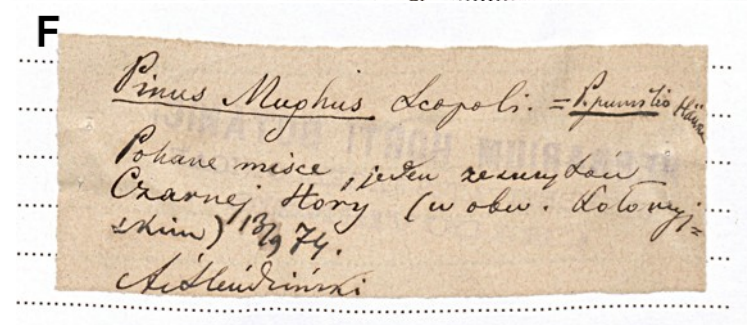 F
Pinus Mughus Scopoli. = P. pumilio Hänke
Pohane misce, jeden ze szczytów
Czarnej Hory (w obw. Kołomyj=
skim) 13/9 74.
A. Śleńdziński